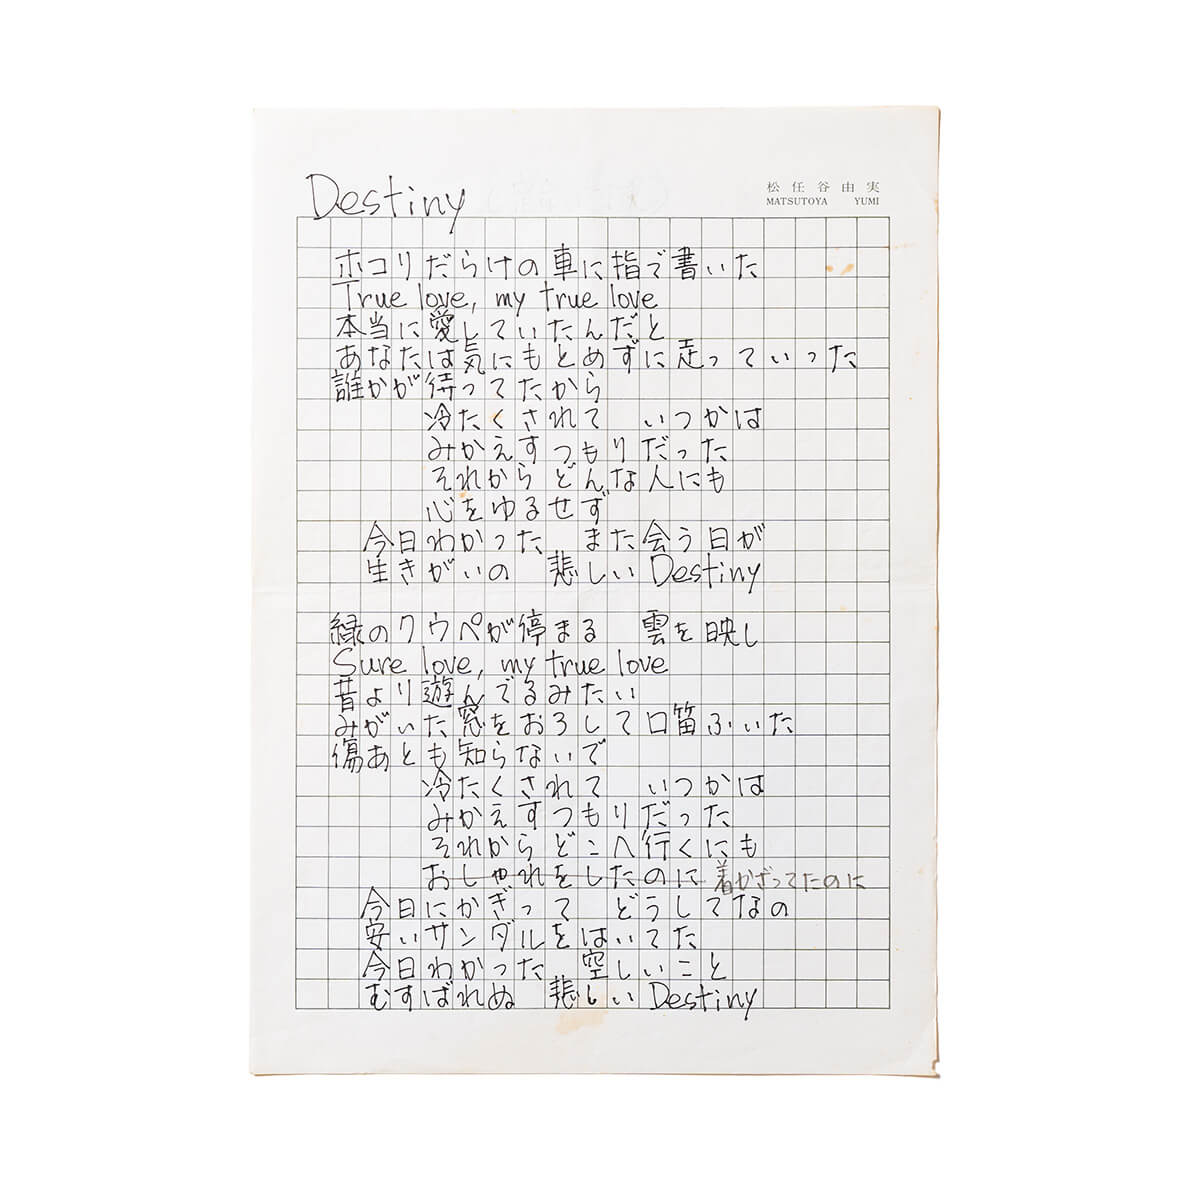 Destiny
松任谷由実
MATSUTOYA YUMI
ホコリだらけの車に指で書いた
True love, my true love
本当に愛していたんだと
あなたは気にもとめずに走っていった
誰かが待ってたから
冷たくされて いつかは
みかえすつもりだった
それからどんな人にも
心をゆるせず
今日わかった また会う日が
生きがいの 悲しいDestiny
緑のクウペが停まる 雲を映し
Sure love, my true love
昔より遊んでるみたい
みがいた窓をおろして口笛ふいた
傷あとも知らないで
冷たくされて いつかは
みかえすつもりだった
それからどこへ行くにも
おしゃれをしたのに 着かざってたのに
今日にかぎって どうしてなの
安いサンダルをはいてた
今日わかった 空しいこと
むすばれぬ 悲しいDestiny